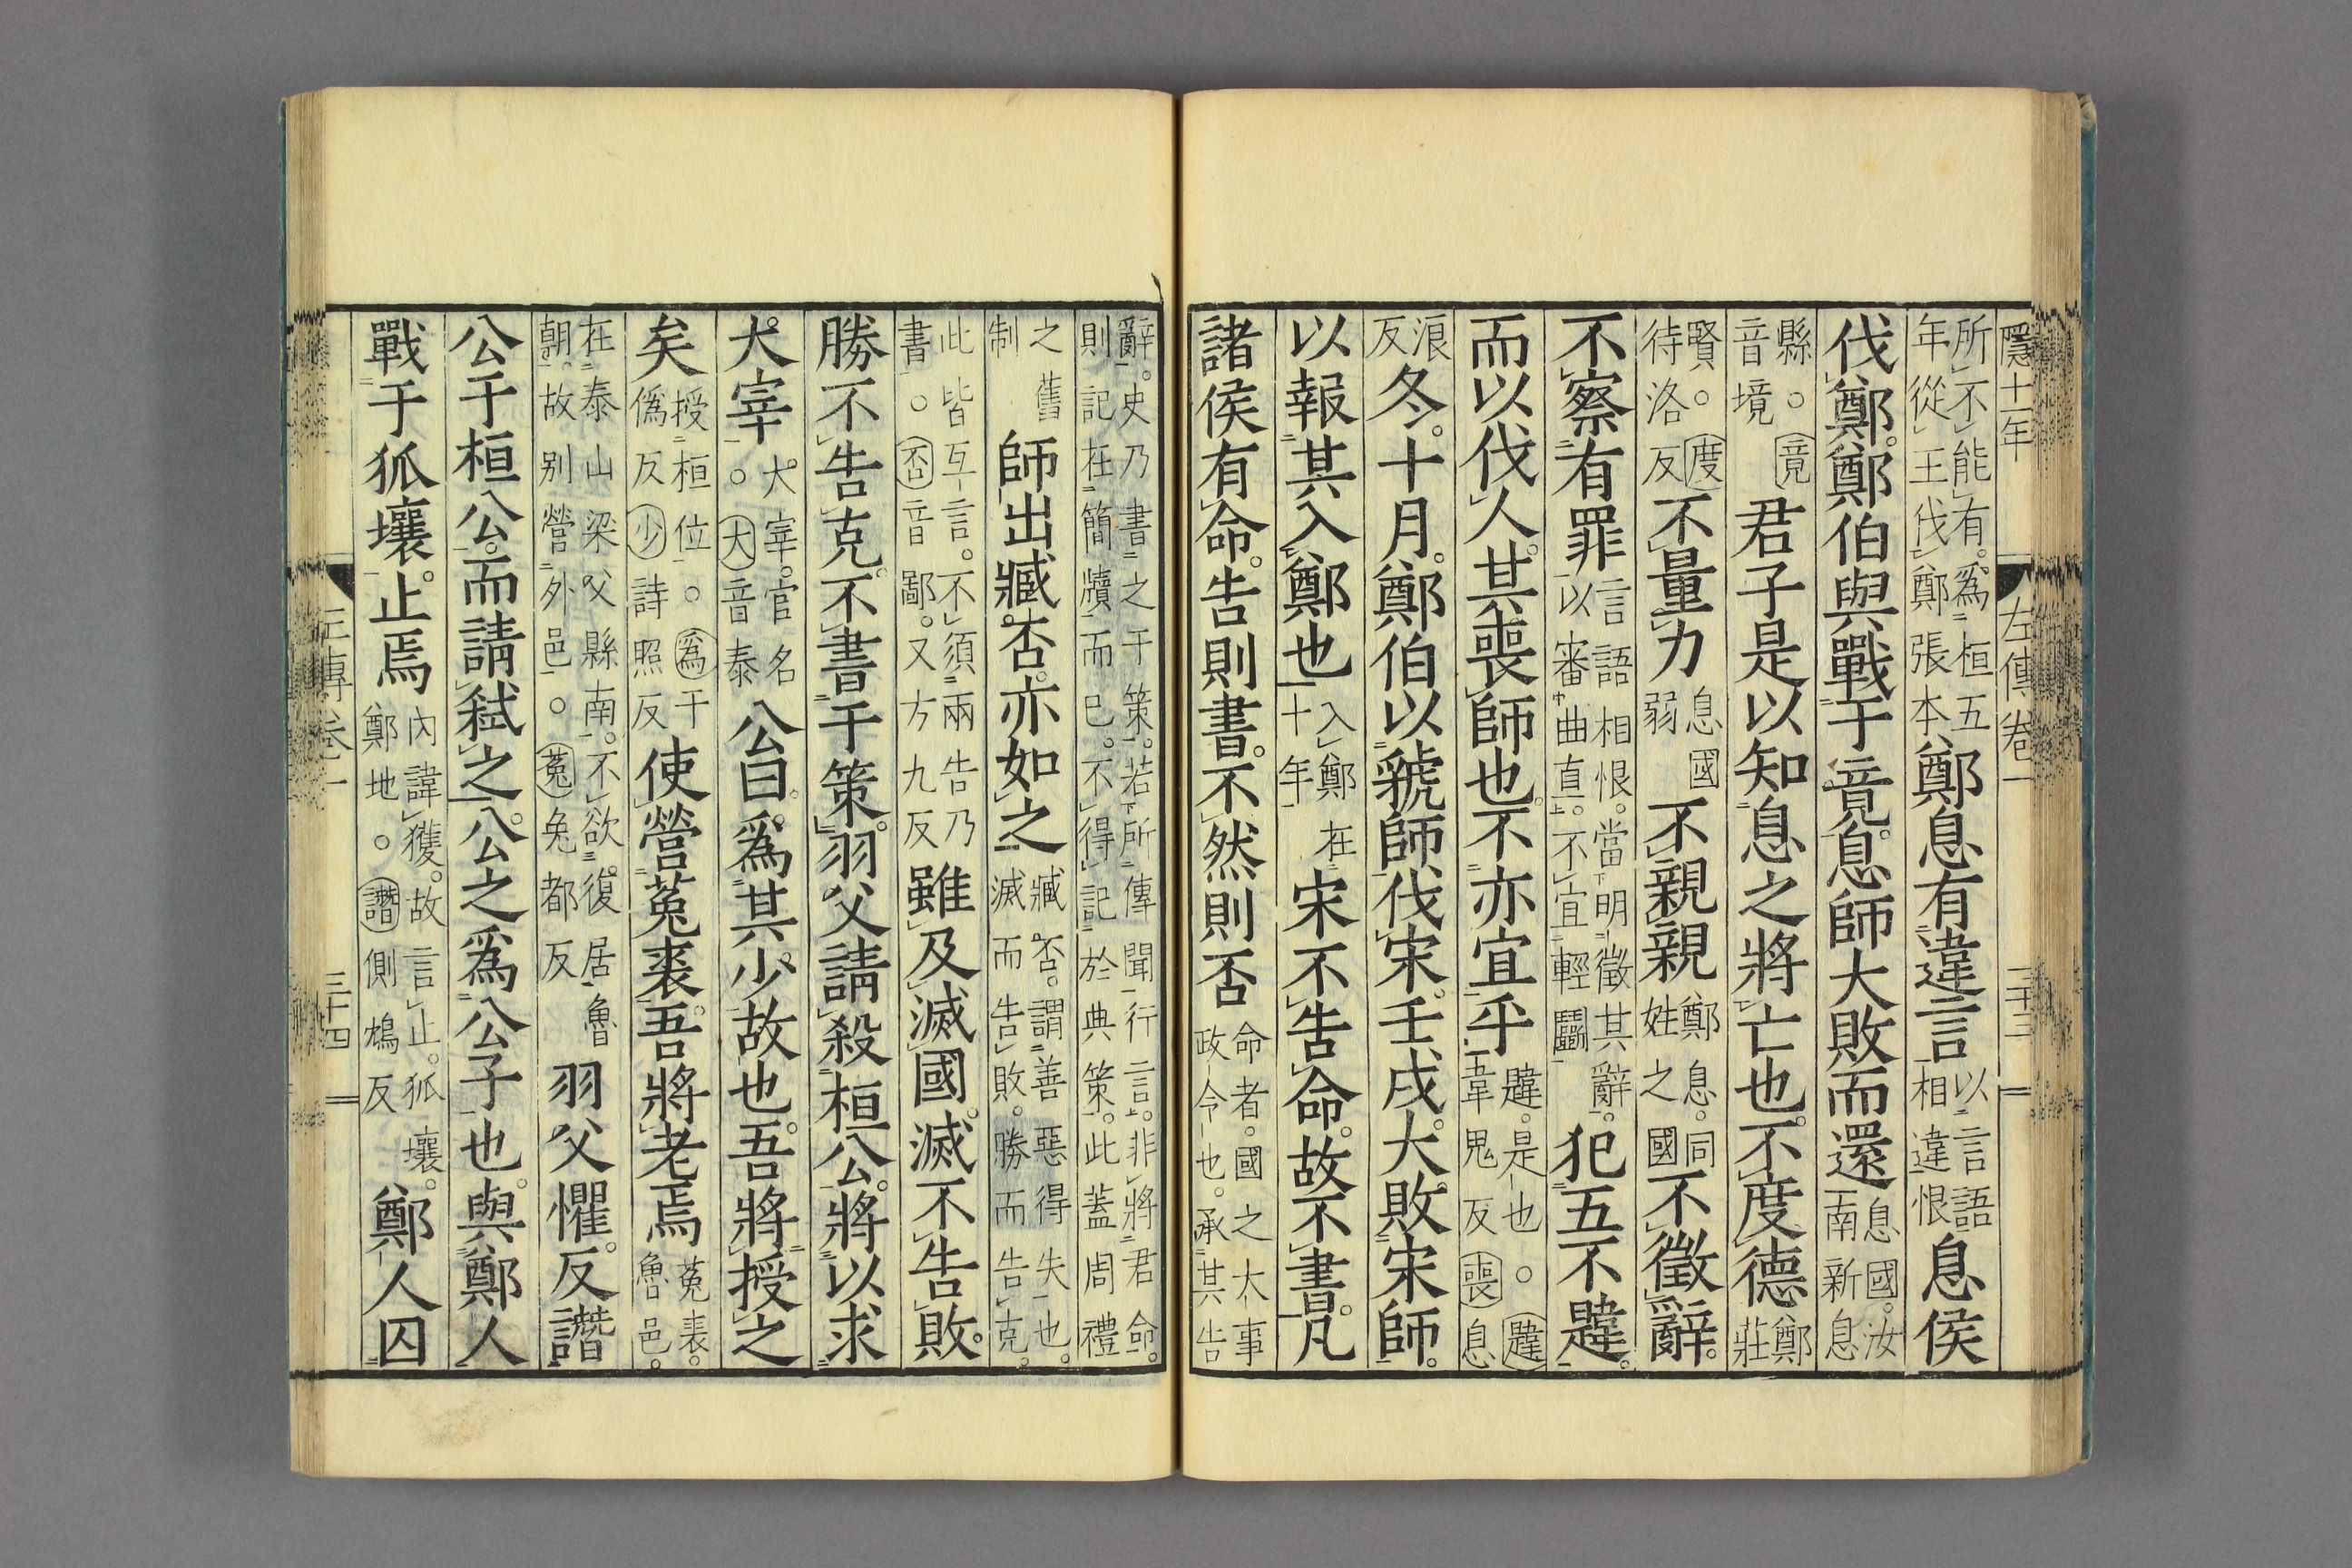 隱十一年 左傳卷一 三十三
所不能有。爲桓五年從王伐鄭張本鄭息有違言以言語相違恨息侯
伐鄭。鄭伯與戰于竟。息師大敗而還息國。汝南新息
縣。○竟音境君子是以知息之將亡也。不度德鄭莊
賢。○度待洛反不量力息國弱不親親鄭息。同姓之國不徵辭。
不察有罪言語相恨。當明徵其辭。以審曲直。不宜輕鬭犯五不韙。
而以伐人。其喪師也。不亦宜乎韙。是也。○韙韋鬼反喪息
浪反冬。十月。鄭伯以虢師伐宋。壬戌。大敗宋師。
以報其入鄭也入鄭在十年宋不告命。故不書。凡
諸侯有命。告則書。不然則否命者。國之大事政令也。承其告
辭。史乃書之于策。若所傳聞行言。非將君命。則記在簡牘而已。不得記於典策。此蓋周禮
之舊制師出臧否。亦如之臧否。謂善惡得失也。滅而告敗。勝而告克。
此皆互言。不須兩告乃書。○否音鄙。又方九反雖及滅國。滅不告敗。
勝不告克。不書于策。羽父請殺桓公。將以求
大宰。大宰。官名○大音泰公曰。爲其少故也。吾將授之
矣授桓位。○爲于僞反少詩照反使營菟裘。吾將老焉菟裘。魯邑。
在泰山梁父縣南。不欲復居魯朝。故别營外邑。○菟兔都反羽父懼。反譖
公于桓公。而請弑之。公之爲公子也。與鄭人
戰于狐壤。止焉內諱獲。故言止。狐壤。鄭地。○譖側鴆反鄭人囚
左傳卷一 三十四